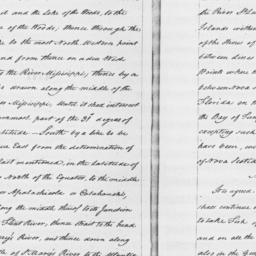 and the Lake of the Woods, to the
of the Woods, thence through the
to the most North Western point
and from thence on a due West
to the River Mississippi, thence by a
drawn along the middle of the
Mississippi, Until it shall intersect
northernmost part of the 31st degree of
Latitude. South by a line to be
due East from the determination of
last mentioned, in the latitude of
North of the Equator, to the middle
River Apalachicola or Catahouchi,
along the middle thereof to its Junction
Flint River, thence strait to the head
Mary's River, and thence down along
middle of St. Mary's River to the Atlantic
the River St.
Islands within
of the Shores of
between lines
Points where
between Nova
Florida on
the Bay of Fun
excepting such
have been, now
of Nova Scotia
It is agreed
shall continue
to take Fish of
and on all the
also in the